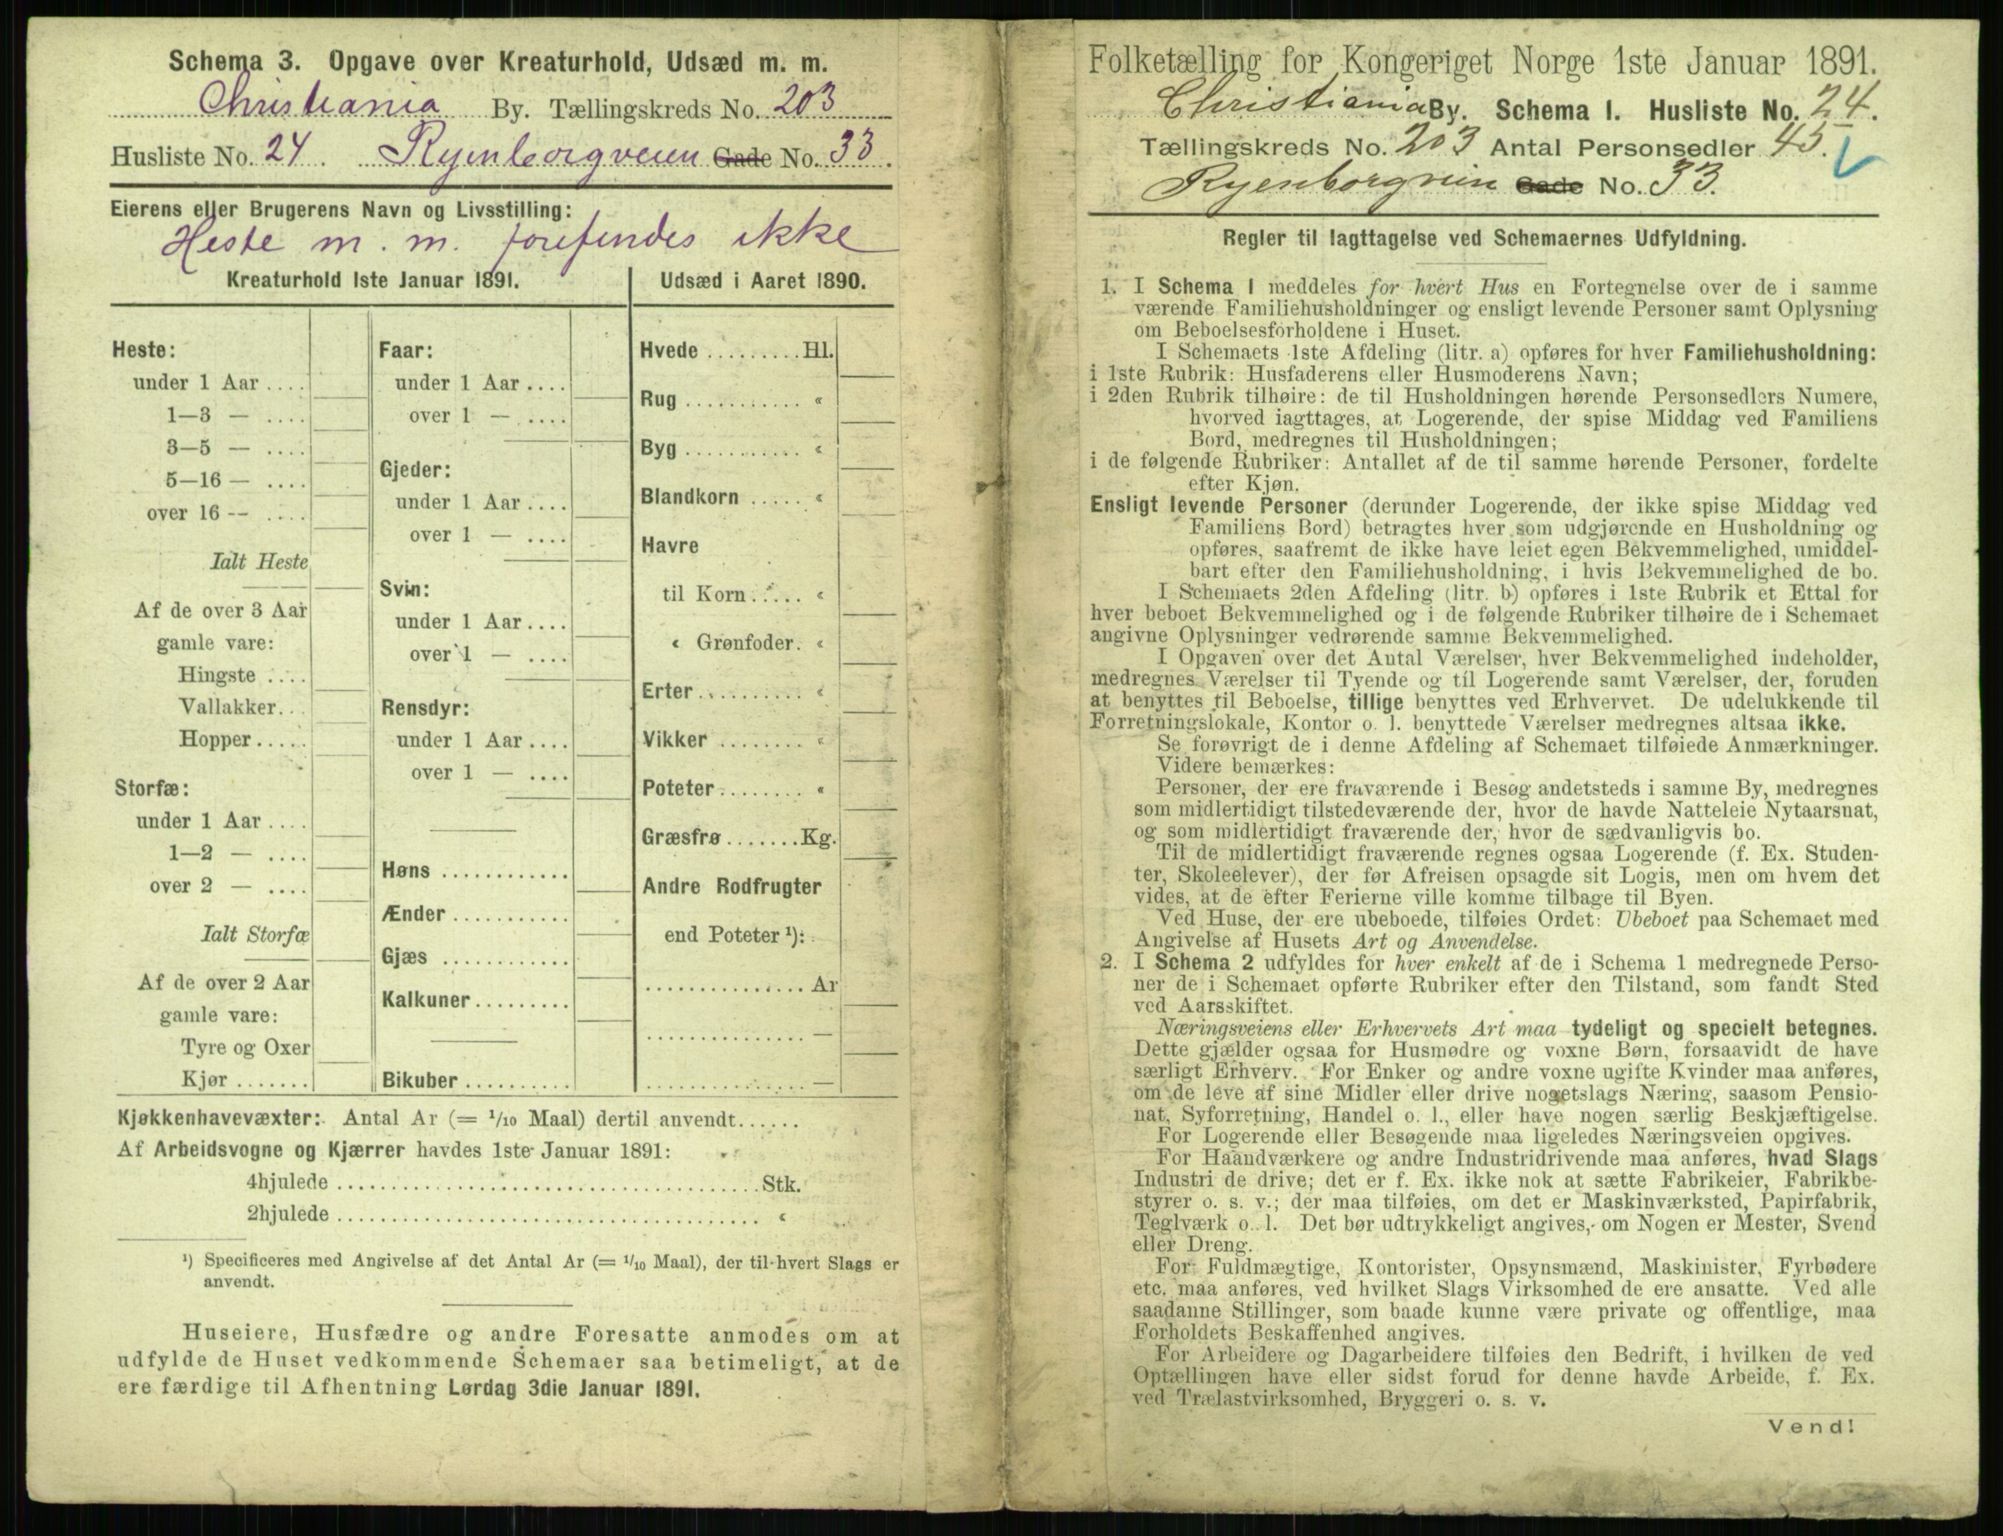 Schema 3. Opgave over Kreaturhold, Udsæd m. m.
Christiania By. Tællingskreds No. 203
Husliste No. 24. Ryenborgveien Gade No. 33.
Eierens eller Brugerens Navn og Livsstilling:
Heste m. m. forefindes ikke
Kreaturhold 1ste Januar 1891.
Heste:
under 1 Aar ....
1—3 — ....
3—5 — ....
5—16 — ....
over 16 — ....
Ialt Heste
Af de over 3 Aar
gamle vare:
Hingste ....
Vallakker...
Hopper.....
Storfæ:
under 1 Aar ....
1—2 — ....
over 2 — ....
Ialt Storfæ
Af de over 2 Aar
gamle vare:
Tyre og Oxer
Kjør .......
Faar:
under 1 Aar ....
over 1 — ....
Gjeder:
under 1 Aar ....
over 1 — ....
Svin:
under 1 Aar ....
over 1 — ....
Rensdyr:
under 1 Aar ....
over 1 — ....
Høns ............
Ænder ...........
Gjæs ............
Kalkuner.........
Bikuber ..........
Udsæd i Aaret 1890.
Hvede .........Hl.
Rug ........... «
Byg ........... «
Blandkorn ..... «
Havre
til Korn ..... «
« Grønfoder. «
Erter.......... «
Vikker ........ «
Poteter........ «
Græsfrø .......Kg.
Andre Rodfrugter
end Poteter ¹):
............... Ar
............... —
............... —
Kjøkkenhavevæxter: Antal Ar (= 1/10 Maal) dertil anvendt......
Af Arbeidsvogne og Kjærrer havdes 1ste Januar 1891:
4hjulede ....................................Stk.
2hjulede .................................... «
¹) Specificeres med Angivelse af det Antal Ar (= 1/10 Maal), der til hvert Slags er
anvendt.
Huseiere, Husfædre og andre Foresatte anmodes om at
udfylde de Huset vedkommende Schemaer saa betimeligt, at de
ere færdige til Afhentning Lørdag 3die Januar 1891.
Folketælling for Kongeriget Norge 1ste Januar 1891.
Christiania By. Schema 1. Husliste No. 24.
Tællingskreds No. 203 Antal Personsedler 45.
Ryenborgveien Gade No. 33.
Regler til Iagttagelse ved Schemaernes Udfyldning.
1. I Schema 1 meddeles for hvert Hus en Fortegnelse over de i samme
værende Familiehusholdninger og ensligt levende Personer samt Oplysning
om Beboelsesforholdene i Huset.
I Schemaets 1ste Afdeling (litr. a) opføres for hver Familiehusholdning:
i 1ste Rubrik: Husfaderens eller Husmoderens Navn;
i 2den Rubrik tilhøire: de til Husholdningen hørende Personsedlers Numere,
hvorved iagttages, at Logerende, der spise Middag ved Familiens
Bord, medregnes til Husholdningen;
i de følgende Rubriker: Antallet af de til samme hørende Personer, fordelte
efter Kjøn.
Ensligt levende Personer (derunder Logerende, der ikke spise Middag ved
Familiens Bord) betragtes hver som udgjørende en Husholdning og
opføres, saafremt de ikke have leiet egen Bekvemmelighed, umiddel-
bart efter den Familiehusholdning, i hvis Bekvemmelighed de bo.
I Schemaets 2den Afdeling (litr. b) opføres i 1ste Rubrik et Ettal for
hver beboet Bekvemmelighed og i de følgende Rubriker tilhøire de i Schemaet
angivne Oplysninger vedrørende samme Bekvemmelighed.
I Opgaven over det Antal Værelser, hver Bekvemmelighed indeholder,
medregnes Værelser til Tyende og til Logerende samt Værelser, der, foruden
at benyttes til Beboelse, tillige benyttes ved Erhvervet. De udelukkende til
Forretningslokale, Kontor o. l. benyttede Værelser medregnes altsaa ikke.
Se forøvrigt de i denne Afdeling af Schemaet tilføiede Anmærkninger.
Videre bemærkes:
Personer, der ere fraværende i Besøg andetsteds i samme By, medregnes
som midlertidigt tilstedeværende der, hvor de havde Natteleie Nytaarsnat,
og som midlertidigt fraværende der, hvor de sædvanligvis bo.
Til de midlertidigt fraværende regnes ogsaa Logerende (f. Ex. Studen-
ter, Skoleelever), der før Afreisen opsagde sit Logis, men om hvem det
vides, at de efter Ferierne ville komme tilbage til Byen.
Ved Huse, der ere ubeboede, tilføies Ordet: Ubeboet paa Schemaet med
Angivelse af Husets Art og Anvendelse.
2. I Schema 2 udfyldes for hver enkelt af de i Schema 1 medregnede Perso-
ner de i Schemaet opførte Rubriker efter den Tilstand, som fandt Sted
ved Aarsskiftet.
Næringsveiens eller Erhvervets Art maa tydeligt og specielt betegnes.
Dette gjælder ogsaa for Husmødre og voxne Børn, forsaavidt de have
særligt Erhverv. For Enker og andre voxne ugifte Kvinder maa anføres,
om de leve af sine Midler eller drive nogetslags Næring, saasom Pensio-
nat, Syforretning, Handel o. l., eller have nogen særlig Beskjæftigelse.
For Logerende eller Besøgende maa ligeledes Næringsveien opgives.
For Haandværkere og andre Industridrivende maa anføres, hvad Slags
Industri de drive; det er f. Ex. ikke nok at sætte Fabrikeier, Fabrikbe-
styrer o. s. v.; der maa tilføies, om det er Maskinværksted, Papirfabrik,
Teglværk o. l. Det bør udtrykkeligt angives, om Nogen er Mester, Svend
eller Dreng.
For Fuldmægtige, Kontorister, Opsynsmænd, Maskinister, Fyrbødere
etc. maa anføres, ved hvilket Slags Virksomhed de ere ansatte. Ved alle
saadanne Stillinger, som baade kunne være private og offentlige, maa
Forholdets Beskaffenhed angives.
For Arbeidere og Dagarbeidere tilføies den Bedrift, i hvilken de ved
Optællingen have eller sidst forud for denne havde Arbeide, f. Ex.
ved Trælastvirksomhed, Bryggeri o. s. v.
Vend!